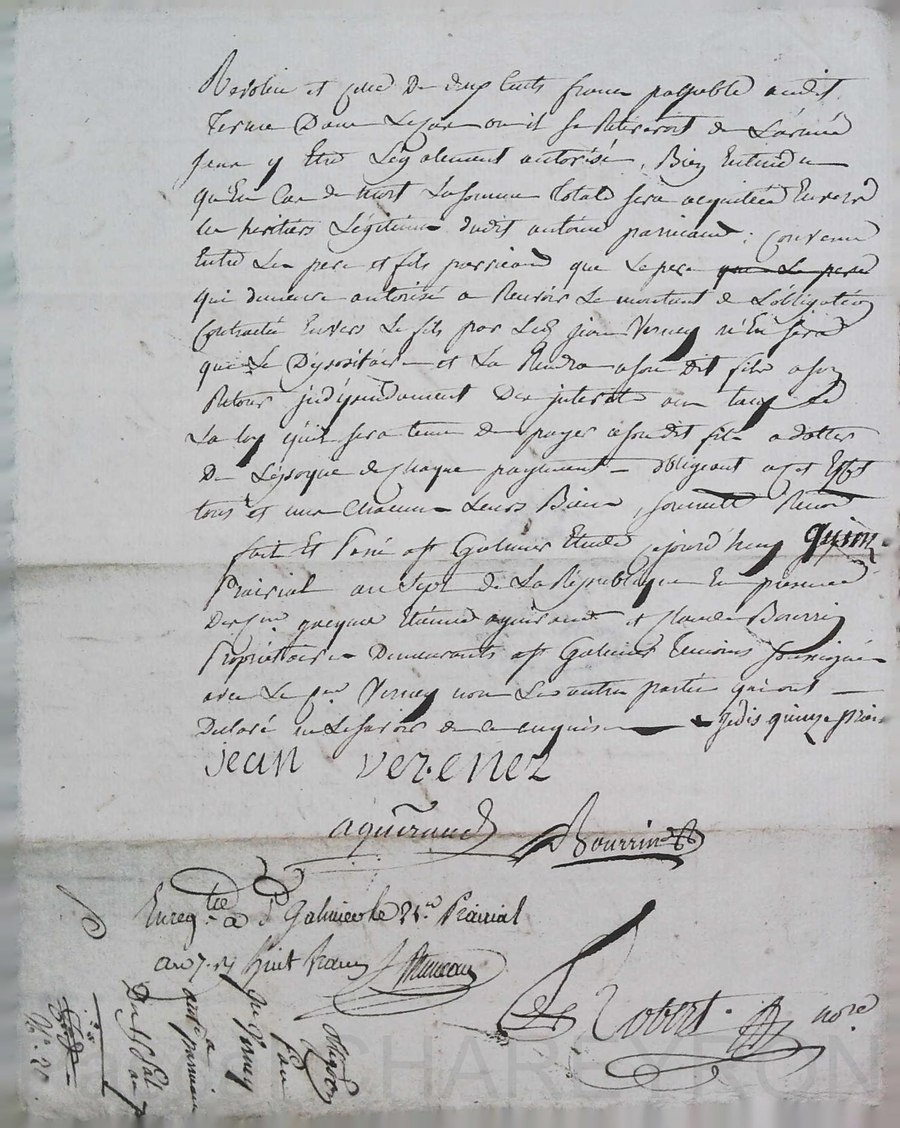 Révolue et celle de deux cents francs payable audit
terme dans le cas où il se retireroit de l'armée
pour y être légalement autorisé, Bien Entendu
qu'En Cas de mort la somme totale sera acquittée Envers
les heritiers Légitimes dudit antoine parricaud ; Convenu
Entre Les pere et fils parricaud que Le pere que Le pere
qui demeure autorisé a Recevoir Le montant de L'obligation
Contractée Envers Le fils par Led jean Verney n'En sera
que Le Dépositaire et La Rendra a son dit fils a son
Retour indépendament Des interets au taux de
La loy qu'il sera tenu de payer a son dit fils a datter
De L'époque de Chaque payement obligeant a cet Effet
tous et un chacuns Leurs Biens, soumett Renon
fait Et Passé a St Galmier Etude cejourd'huy quinze
Prairial an Sept de La République En presence
Des Cns jacque Etienne aguiraud et Claude Bourrin
Propriettaires Demeurants a St Galmier Temoins soussignés
avec Le Cen Verney non Les autres parties qui ont
Declaré ne Le savoir de ce enquis Jedis quinze prai
jean verenez
aguiraud Bourrin
Enregtré a St Galmier le 21e Prairial
an 7. R huit francs
Robert nore